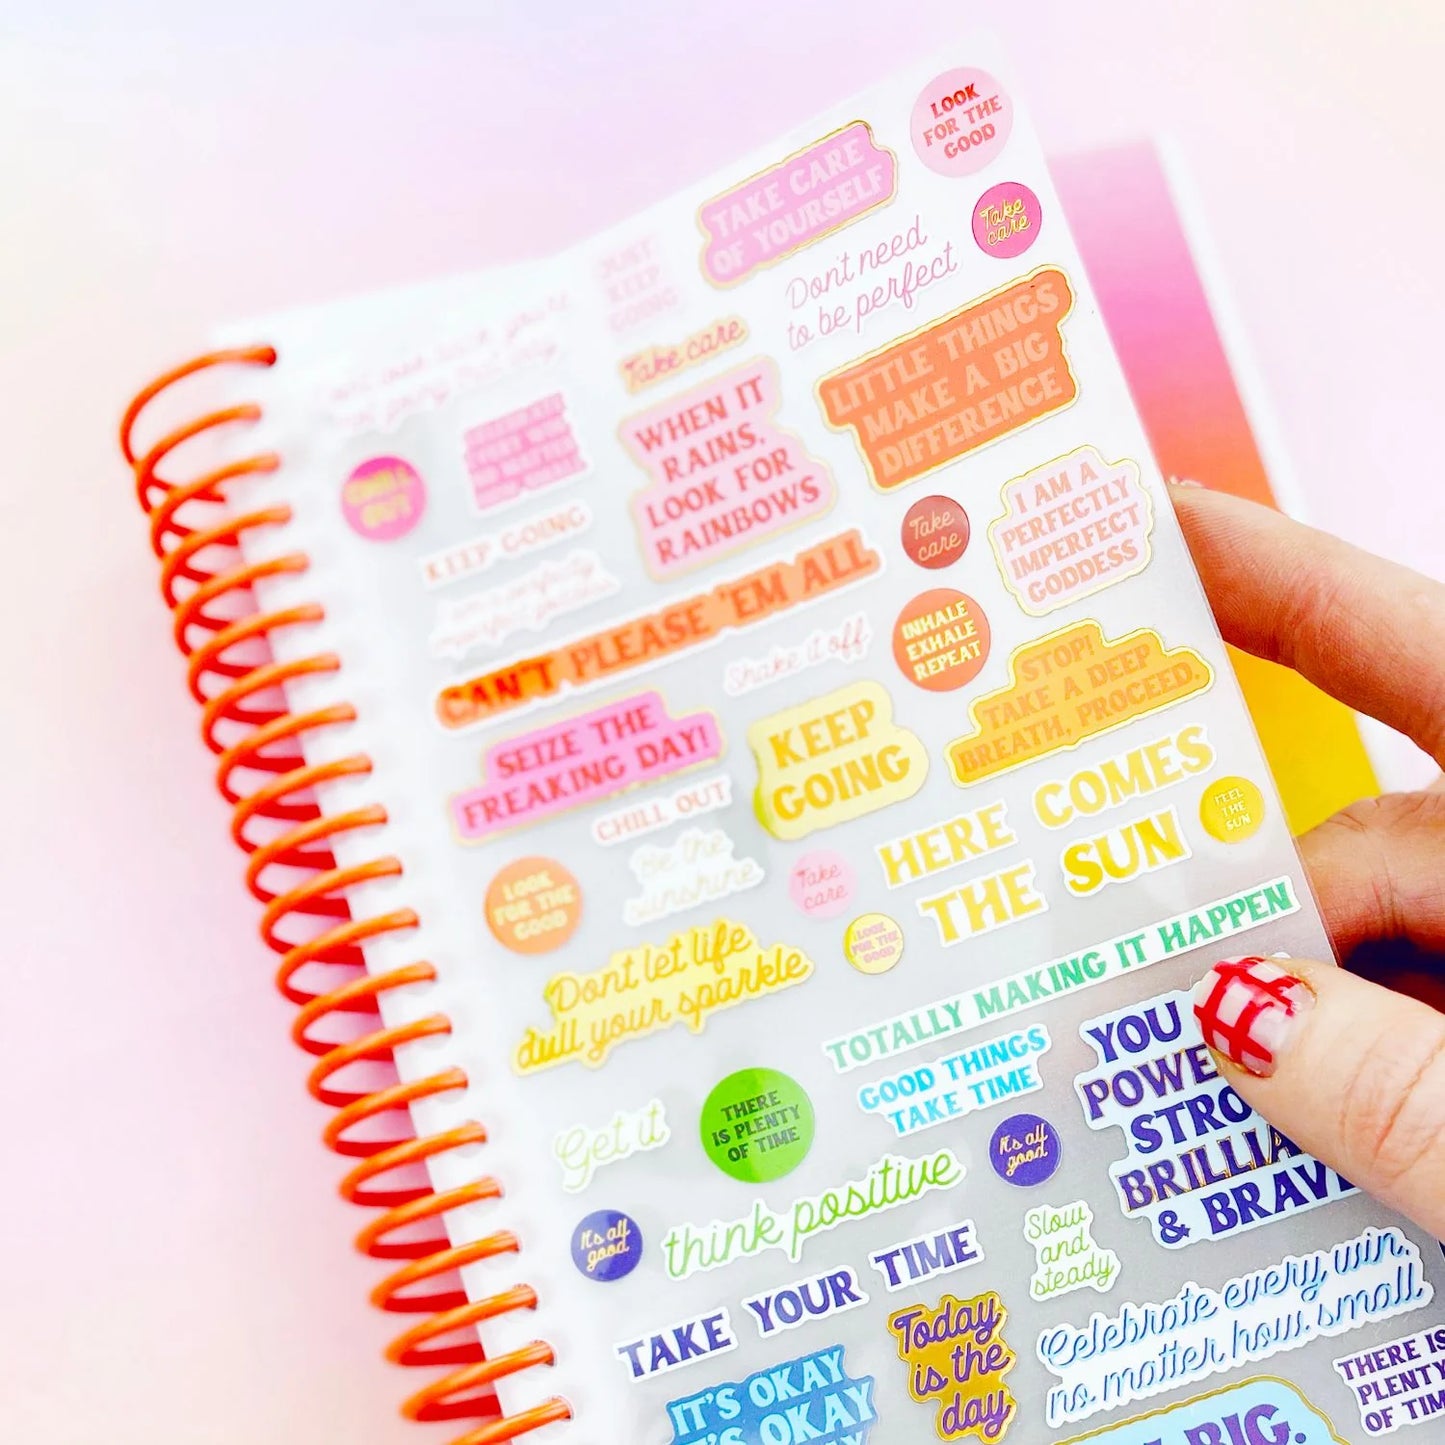 LOOK
FOR THE
GOOD
TAKE CARE
OF YOURSELF
Take
care
Don't need
to be perfect
JUST
KEEP
GOING
Take care
LITTLE THINGS
MAKE A BIG
DIFFERENCE
WHEN IT
RAINS,
LOOK FOR
RAINBOWS
CELEBRATE
EVERY WIN
NO MATTER
HOW SMALL
CHILL
OUT
KEEP GOING
Take
care
I AM A
PERFECTLY
IMPERFECT
GODDESS
CAN'T PLEASE 'EM ALL
Shake it off
INHALE
EXHALE
REPEAT
STOP!
TAKE A DEEP
BREATH, PROCEED.
SEIZE THE
FREAKING DAY!
KEEP
GOING
CHILL OUT
HERE COMES
THE SUN
FEEL
THE
SUN
LOOK
FOR THE
GOOD
Be the
sunshine
Take
care
LOOK
FOR THE
GOOD
Dont let life
dull your sparkle
TOTALLY MAKING IT HAPPEN
GOOD THINGS
TAKE TIME
YOU
POWE
STRO
BRILLIA
& BRAVE
Get it
THERE
IS PLENTY
OF TIME
It's all
good
think positive
It's all
good
Slow
and
steady
TAKE YOUR TIME
Today
is the
day
Celebrate every win,
no matter how small
IT'S OKAY
IT'S OKAY
THERE IS
PLENTY
OF TIM
BIG.